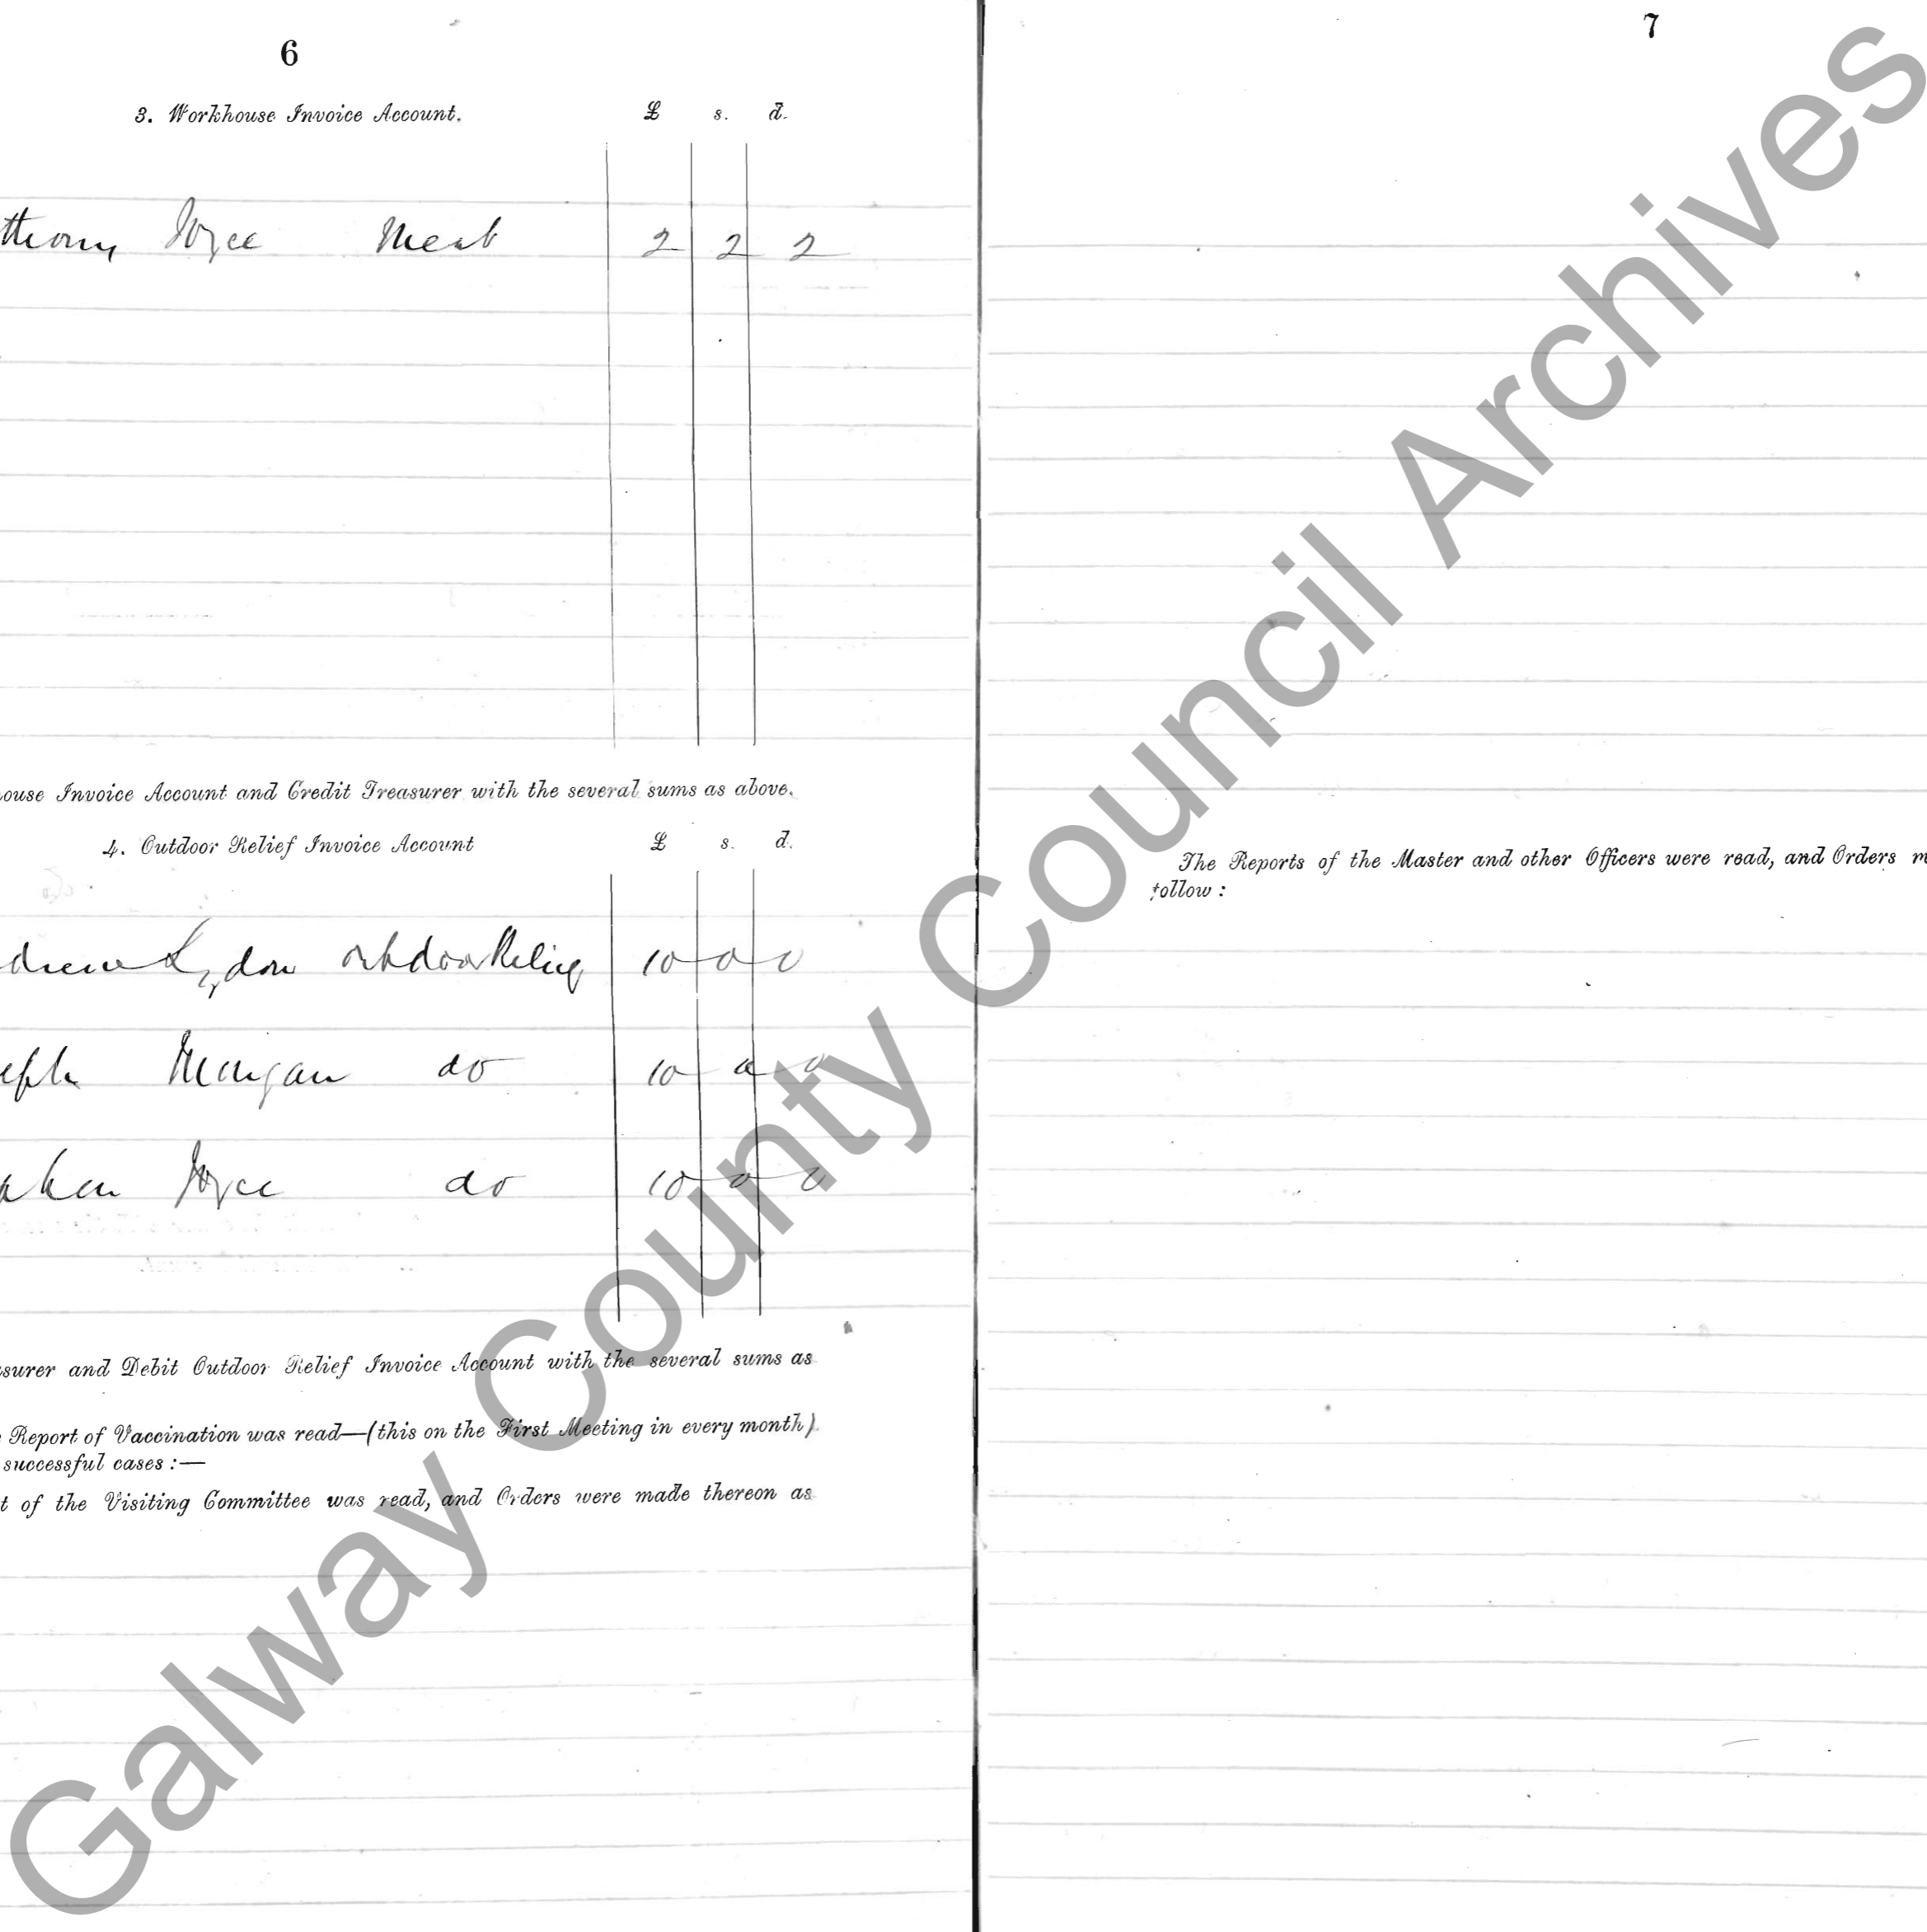 6
3. Workhouse Invoice Account. £ s. d.
thony Joyce Meat 2 2 2
ouse Invoice Account and Credit Treasurer with the several sums as above.
4. Outdoor Relief Invoice Account £ s. d.
drew Lydon outdoor Relief 10 0 0
eph Mongan do 10 0 0
phen Joyce do 10 0 0
surer and Debit Outdoor Relief Invoice Account with the several sums as
Report of Vaccination was read—(this on the First Meeting in every month)
successful cases :—
t of the Visiting Committee was read, and Orders were made thereon as
7
The Reports of the Master and other Officers were read, and Orders m
follow :
Galway County Council Archives